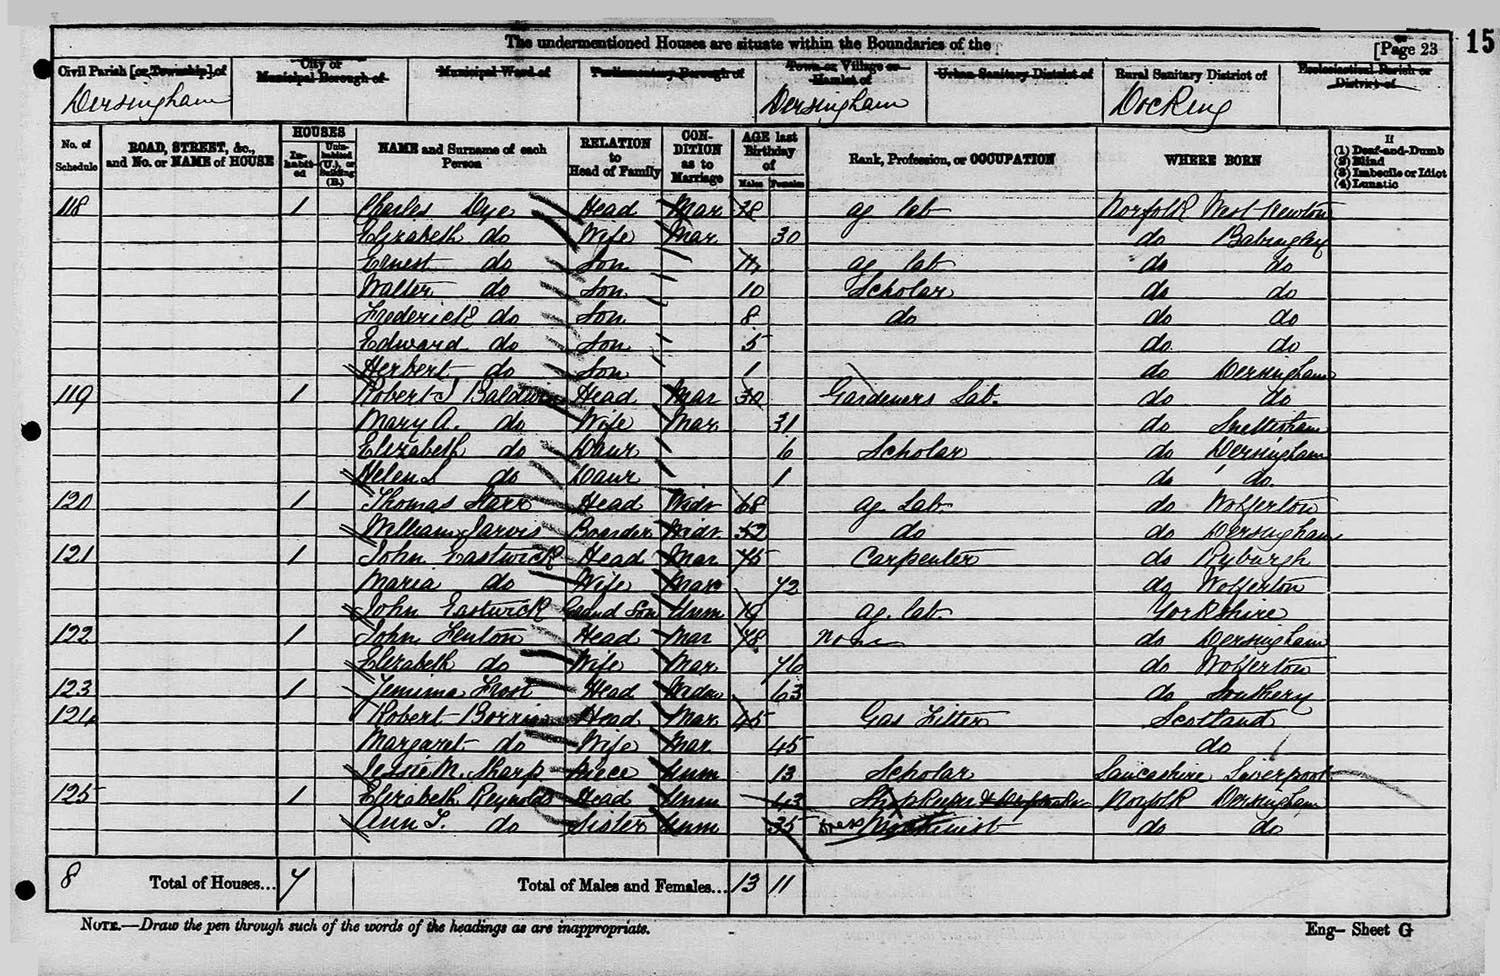 The undermentioned Houses are situate within the Boundaries of the
[Page 23
15
Civil Parish [or Township] of
City or Municipal Borough of
Municipal Ward of
Parliamentary Borough of
Town or Village or Hamlet of
Urban Sanitary District of
Rural Sanitary District of
Ecclesiastical Parish or District of
Dersingham Dersingham Docking
No. of Schedule
ROAD, STREET, &c., and No. or NAME of HOUSE
HOUSES
Inhabited
Uninhabited (U.), or Building (B.)
NAME and Surname of each Person
RELATION to Head of Family
CONDITION as to Marriage
AGE last Birthday of
Males Females
Rank, Profession, or OCCUPATION
WHERE BORN
If
(1) Deaf-and-Dumb
(2) Blind
(3) Imbecile or Idiot
(4) Lunatic
118 1 Charles Dye Head Mar 38 ag lab Norfolk West Newton
Elizabeth do Wife Mar 30 do Babingley
Ernest do Son 11 ag lab do do
Walter do Son 10 Scholar do do
Frederick do Son 8 do do do
Edward do Son 5 do do
Herbert do Son 1 do Dersingham
119 1 Robert J Baldwin Head Mar 30 Gardeners Lab. do do
Mary A. do Wife Mar 31 do Snettisham
Elizabeth do Daur 6 Scholar do Dersingham
Helen S do Daur 1 do do.
120 1 Thomas Starr Head Widr 68 ag. Lab. do Wolferton
William Jarvis Boarder Widr 52 do do Dersingham
121 1 John Eastwick Head Mar 75 Carpenter do Ryburgh
Maria do Wife Mar 72 do Wolferton
John Eastwick Grand Son Unm 19 ag. lab. Yorkshire
122 1 John Fenton Head Mar 78 None do Dersingham
Elizabeth do Wife Mar 76 do Wolferton
123 1 Jemima Frost Head Widow 63 do Southery
124 Robert Borris Head Mar 45 Gas Fitter Scotland
Margaret do Wife Mar 45 do
Jessie M. Sharp Niece Unm 13 Scholar Lancashire Liverpool
125 1 Elizabeth Reynolds Head Unm 43 Shopkeeper & Norfolk Dersingham
Ann S. do Sister Unm 35 Dress Machinist do do
8 Total of Houses... 7 Total of Males and Females... 13 11
NOTE.—Draw the pen through such of the words of the headings as are inappropriate.
Eng— Sheet G